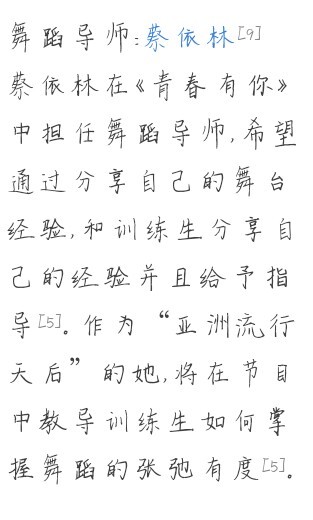 舞蹈导师:蔡依林[9]
蔡依林在《青春有你》
中担任舞蹈导师,希望
通过分享自己的舞台
经验,和训练生分享自
己的经验并且给予指
导[5]。作为“亚洲流行
天后”的她,将在节目
中教导训练生如何掌
握舞蹈的张弛有度[5]。